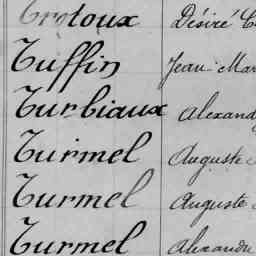 Trotoux Désiré
Tuffin Jean Mar
Turbiaux Alexand
Turmel Auguste
Turmel Auguste
Turmel Alexandre